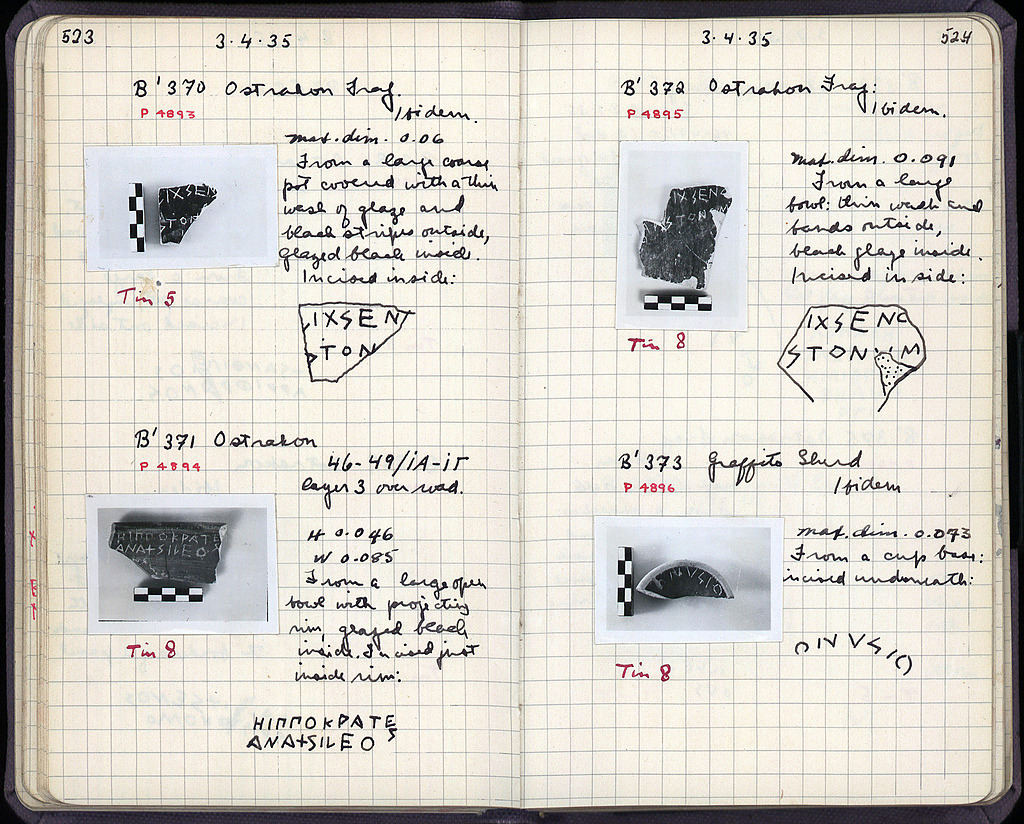 523
3·4·35
B' 370 Ostrakon Frag.
P 4893
Ibidem.
max. dim. 0.06
From a large coarse
pot covered with a thin
wash of glaze and
black stripes outside,
glazed black inside.
Incised inside:
Tin 5
IXSEN
STON
B' 371 Ostrakon
P 4894
46-49/ΙΑ-ΙΓ
layer 3 over road.
H 0.046
W 0.085
From a large open
bowl with projecting
rim, glazed black
inside. Incised just
inside rim:
Tin 8
HIΠΠOKPATES
ANA+SILEO
524
3·4·35
B' 372 Ostrakon Frag:
P 4895
Ibidem.
max. dim. 0.091
From a large
bowl: thin wash and
bands outside,
black glaze inside.
Incised inside:
Tin 8
IXSEN
STON
B' 373 Graffito Sherd
P 4896
Ibidem
max. dim. 0.073
From a cup base:
incised underneath:
Tin 8